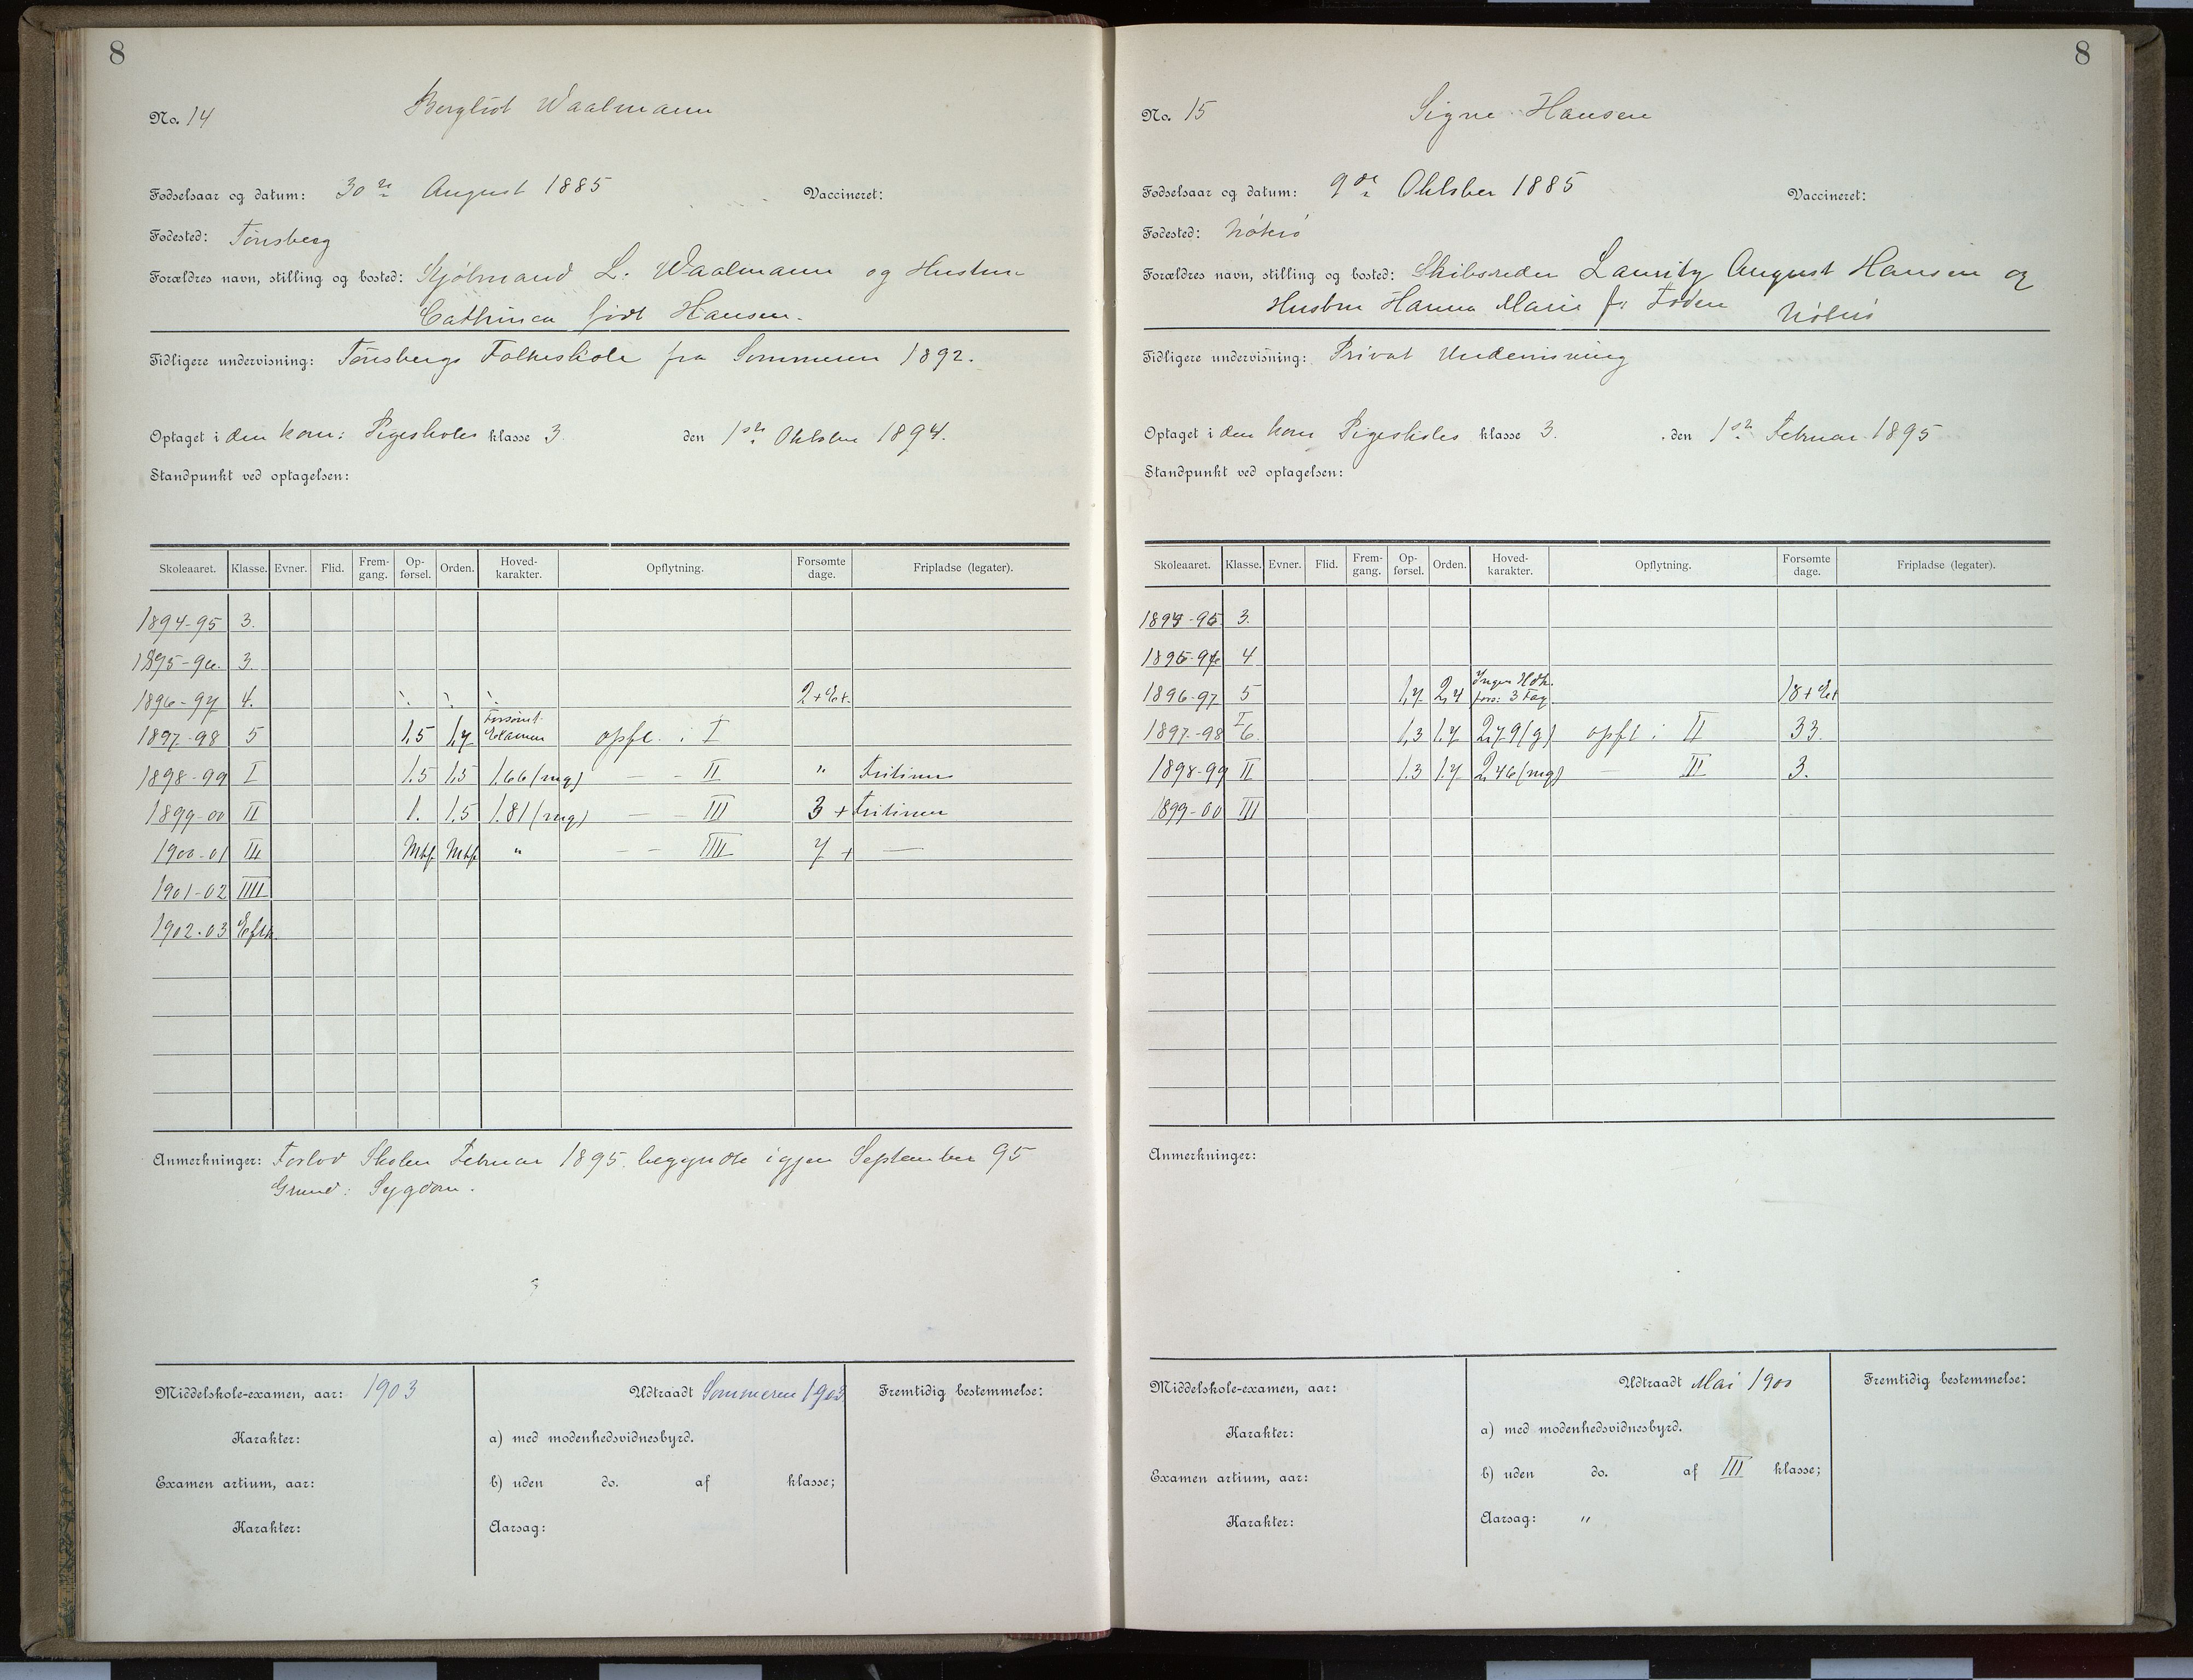 8
No. 14 Bergliot Waalmann
Fødselsaar og datum: 30te August 1885 Vaccineret:
Fødested: Tønsberg
Forældres navn, stilling og bosted: Sjømand L. Waalmann og Hustru
Cathrinea født Hansen.
Tidligere undervisning: Tønsbergs Folkeskole fra Sommeren 1892.
Optaget i den kom: Pigeskoles klasse 3. den 1ste Oktober 1894.
Standpunkt ved optagelsen:
Skoleaaret. Klasse. Evner. Flid. Frem-gang. Op-førsel. Orden. Hoved-karakter. Opflytning. Forsømte dage. Fripladse (legater).
1894-95 3.
1895-96. 3.
1896-97 4. 2+
1897-98 5 1,5 1,7 Forsømt Examen opfl. i I
1898-99 I 1.5 1,5 1.66 (mg) — - II " Fritimer
1899-00 II 1. 1.5 1.81 (mg) — - III 3 + Fritimer
1900-01 III Mtf. Mtf. " - - IIII 7 + —
1901-02 IIII
1902-03 Eftk.
Anmerkninger: Forlod Skolen Februar 1895. begyndte igjen September 95
Grund: Sygdom.
Middelskole-examen, aar: 1903 Udtraadt Sommeren 1903 Fremtidig bestemmelse:
Karakter: a) med modenhedsvidnesbyrd.
Examen artium, aar: b) uden do. af klasse;
Karakter: Aarsag:
8
No. 15 Signe Hansen
Fødselsaar og datum: 9de Oktober 1885 Vaccineret:
Fødested: Nøterø
Forældres navn, stilling og bosted: Skibsreder Lauritz August Hansen og
Hustru Hanna Marie f. Foden Nøterø
Tidligere undervisning: Privat Undervisning
Optaget i den kom Pigeskoles klasse 3. den 1ste Februar 1895
Standpunkt ved optagelsen:
Skoleaaret. Klasse. Evner. Flid. Frem-gang. Op-førsel. Orden. Hoved-karakter. Opflytning. Forsømte dage. Fripladse (legater).
1894-95 3.
1895-96 4
1896-97 5 1,7 2,4 Ingen Hdk. fors: 3 Fag 18+
1897-98 I 6. 1,3 1.7 2,79 (g) opfl i II 33.
1898-99 II 1.3 1.7 2,46 (mg) — III 3.
1899-00 III
Anmerkninger:
Middelskole-examen, aar: Udtraadt Mai 1900 Fremtidig bestemmelse:
Karakter: a) med modenhedsvidnesbyrd.
Examen artium, aar: b) uden do. af III klasse;
Karakter: Aarsag: "